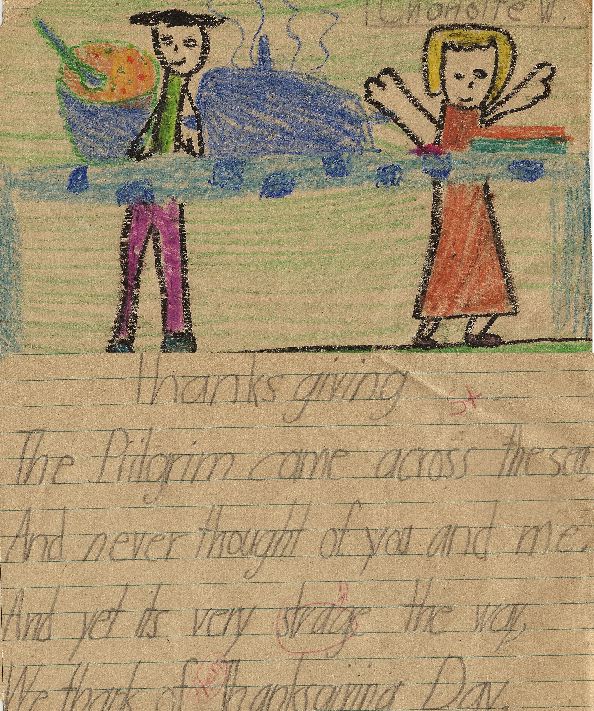 Charlotte W.
Thanksgiving
The Pilgrim came across the sea,
And never thought of you and me.
And yet its very strage the way,
We think of Thanksgiving Day